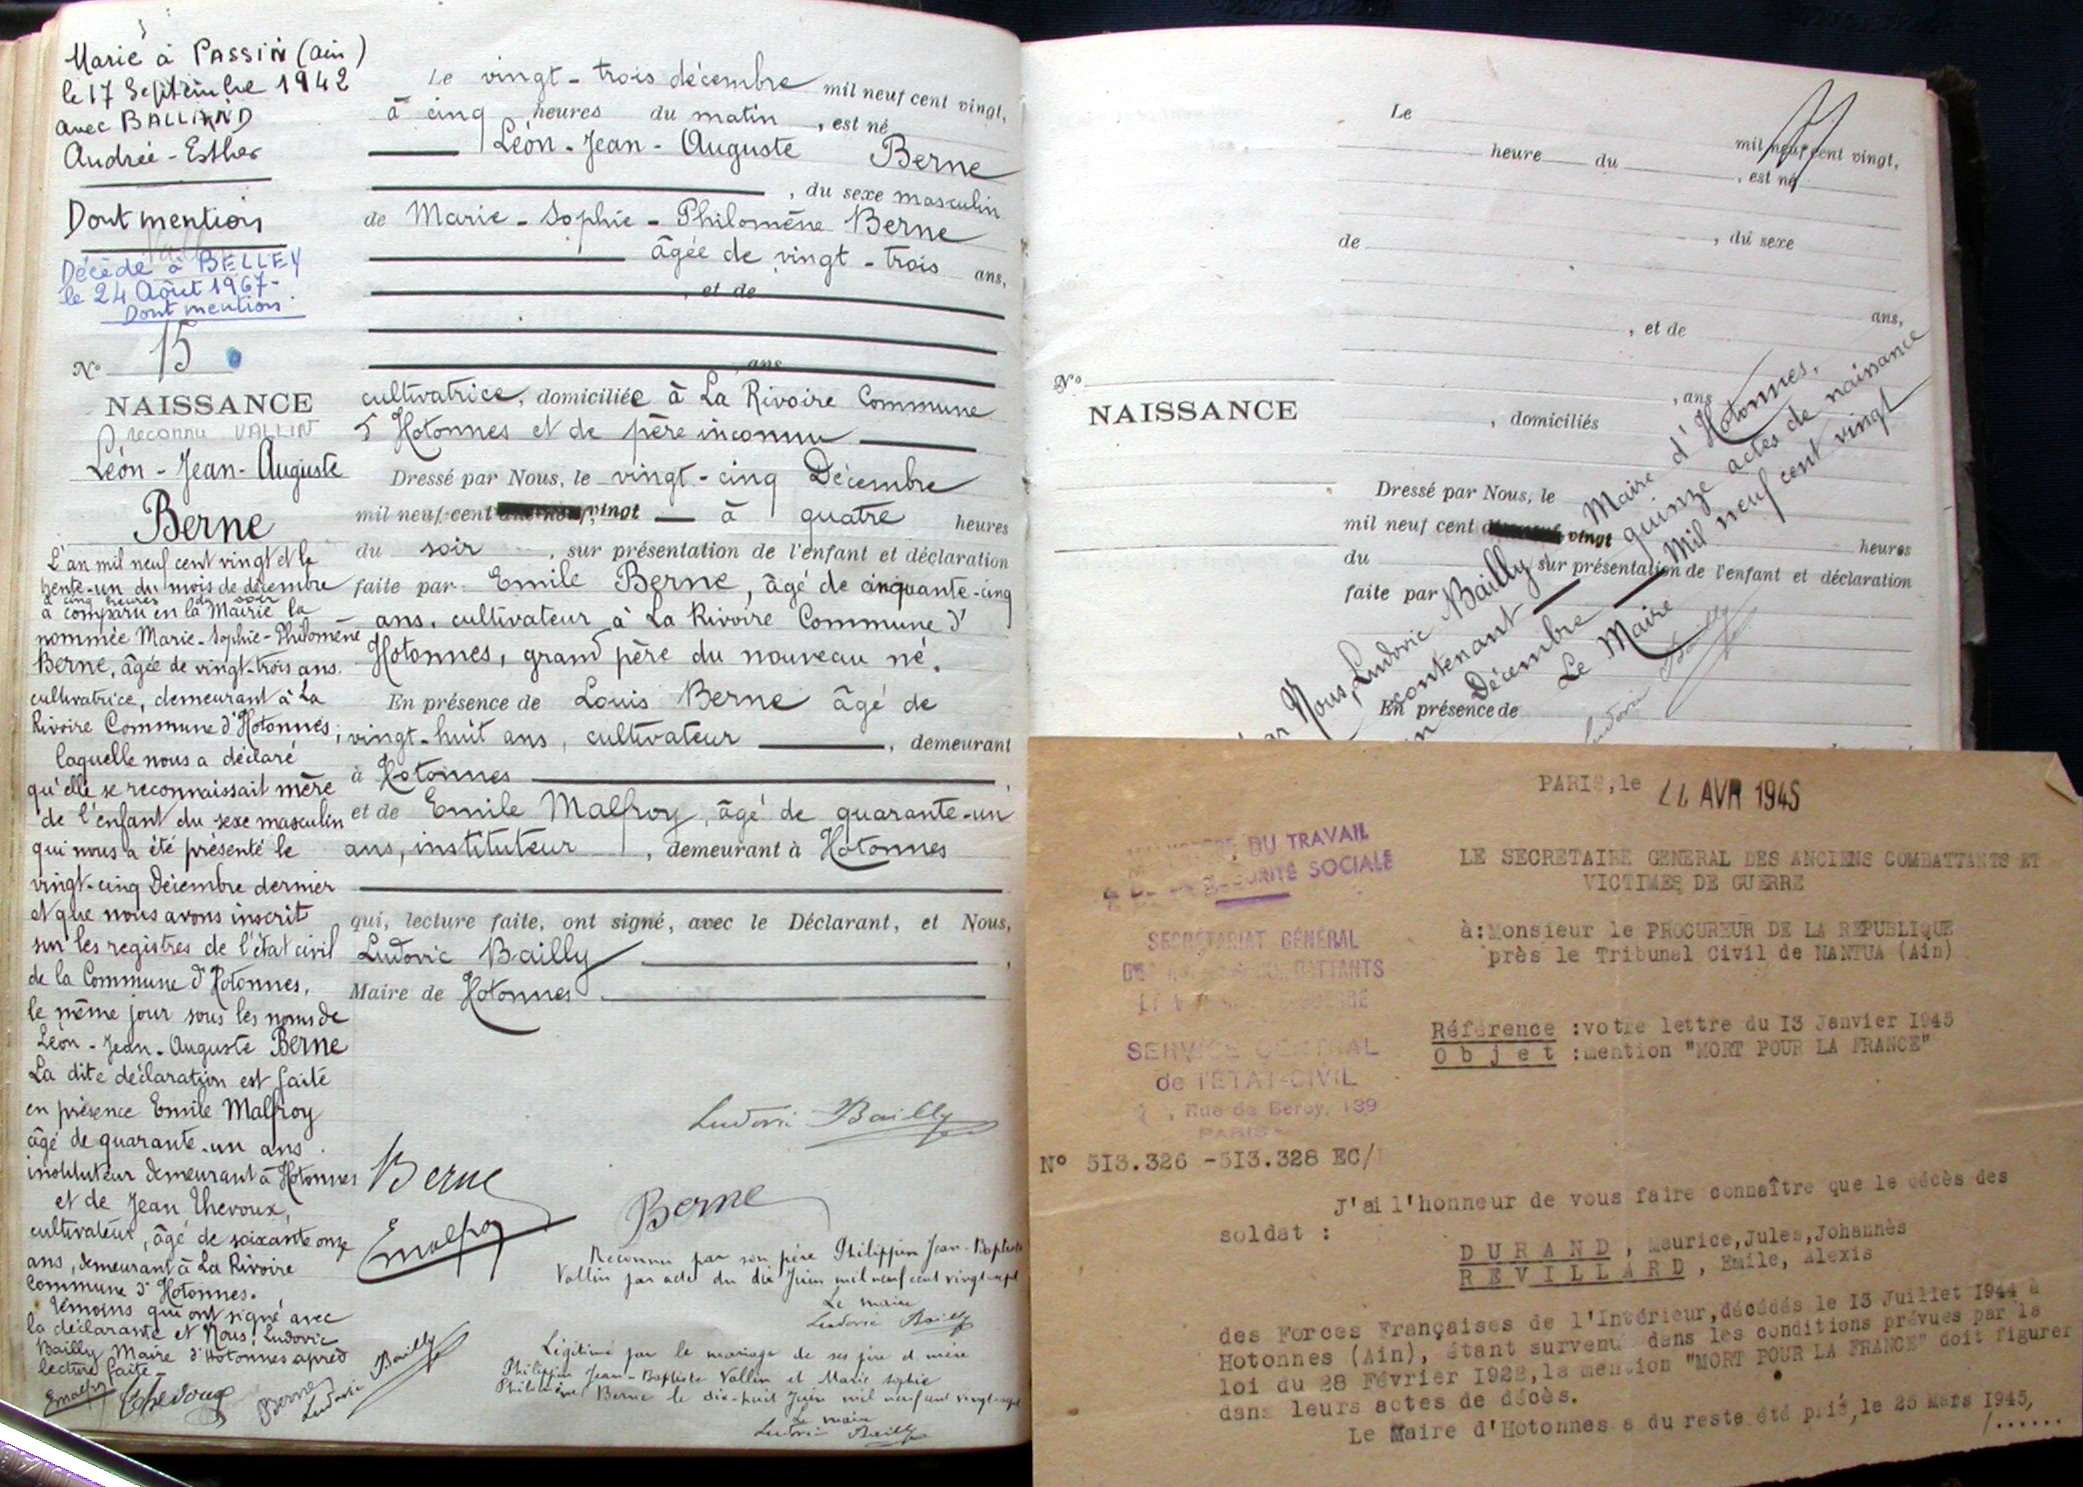 Marié à PASSIN (Ain)
le 17 Septembre 1942
avec BALLAND
Andrée - Esther
Dont mention
Décédé à BELLEY
le 24 Août 1967-
Dont mention
N° 15
NAISSANCE
reconnu VALLIN
Léon - Jean - Auguste
Berne
L'an mil neuf cent vingt et le
trente-un du mois de décembre
à cinq heures du soir
a comparu en la Mairie la
nommée Marie-Sophie-Philomène
Berne, âgée de vingt-trois ans.
cultivatrice, demeurant à La
Rivoire Commune d'Hotonnes;
laquelle nous a déclaré
qu'elle se reconnaissait mère
de l'enfant du sexe masculin
qui nous a été présenté le
vingt-cinq Décembre dernier
et que nous avons inscrit
sur les registres de l'état civil
de la Commune d'Hotonnes,
le même jour sous les noms de
Léon - Jean - Auguste Berne
La dite déclaration est faite
en présence Emile Malfroy
âgé de quarante-un ans
instituteur demeurant à Hotonnes
et de Jean Thevoux,
cultivateur, âgé de soixante onze
ans, demeurant à La Rivoire
Commune d'Hotonnes.
témoins qui ont signé avec
la déclarante et Nous, Ludovic
Bailly, Maire d'Hotonnes après
lecture faite-
Emalfroy Thevoux Berne Ludovic Bailly
Le vingt-trois décembre mil neuf cent vingt,
à cinq heures du matin, est né
Léon - Jean - Auguste Berne
, du sexe masculin
de Marie - Sophie - Philomène Berne
âgée de vingt-trois ans,
, et de
ans
cultivatrice, domiciliée à La Rivoire Commune
d'Hotonnes et de père inconnu
Dressé par Nous, le vingt-cinq Décembre
mil neuf cent vingt à quatre heures
du soir, sur présentation de l'enfant et déclaration
faite par Emile Berne, âgé de cinquante-cinq
ans, cultivateur à La Rivoire Commune d'
Hotonnes, grand père du nouveau né.
En présence de Louis Berne âgé de
vingt-huit ans, cultivateur, demeurant
à Hotonnes,
et de Emile Malfroy, âgé de quarante-un
ans, instituteur, demeurant à Hotonnes
qui, lecture faite, ont signé, avec le Déclarant, et Nous,
Ludovic Bailly,
Maire de Hotonnes.
Ludovic Bailly
Berne
Berne
Emalfroy
Reconnu par son père Philippin Jean-Baptiste
Vallin par acte du dix Juin mil neuf cent vingt-sept
Le maire
Ludovic Bailly
Légitimé par le mariage de ses père et mère
Philippin Jean-Baptiste Vallin et Marie Sophie
Philomène Berne le dix-huit Juin mil neuf cent vingt-sept
Le maire
Ludovic Bailly
Le mil neuf cent vingt,
heure du, est né
de, du sexe
ans,
, et de
N°
, ans
NAISSANCE
, domiciliés
Dressé par Nous, le
mil neuf cent vingt heures
du sur présentation de l'enfant et déclaration
faite par
En présence de
Nous, Ludovic Bailly Maire d'Hotonnes,
contenant quinze actes de naissance
Décembre Mil neuf cent vingt
Le Maire
Ludovic Bailly
PARIS, le AVR 1945
DU TRAVAIL
SÉCURITÉ SOCIALE
SECRÉTARIAT GÉNÉRAL
COMBATTANTS
SERVICE CENTRAL
de l'ÉTAT-CIVIL
, Rue de Bercy, 139
PARIS
LE SECRETAIRE GENERAL DES ANCIENS COMBATTANTS ET
VICTIMES DE GUERRE
à:Monsieur le PROCUREUR DE LA REPUBLIQUE
près le Tribunal Civil de NANTUA (Ain)
Référence :votre lettre du I3 Janvier I945
Objet :mention "MORT POUR LA FRANCE"
N° 5I3.326 -5I3.328 EC/
J'ai l'honneur de vous faire connaître que le décès des
soldat :
DURAND, Maurice,Jules,Johannès
REVILLARD, Emile, Alexis
des Forces Françaises de l'Intérieur,décédés le I3 Juillet I944 à
Hotonnes (Ain), étant survenu dans les conditions prévues par la
loi du 28 Février I922,la mention "MORT POUR LA FRANCE" doit figurer
dans leurs actes de décès.
Le Maire d'Hotonnes a du reste été prié,le 25 Mars I945,
/......